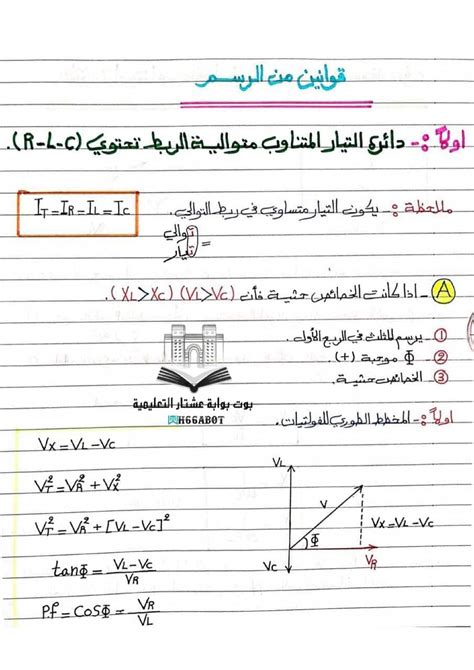 قوانين من الرسم
اولاً :- دائرة التيار المتناوب متوالية الربط تحتوي (R-L-C).
ملاحظة :- يكون التيار متساوي في ربط التوالي.
I_T=I_R=I_L=I_C
توالي
=
تيار
A - اذا كانت الخصائص حثية فأن (VL>VC) (XL>XC).
① - يرسم المثلث في الربع الأول.
② - Φ موجبة (+)
③ - الخصائص حثية.
بوت بوابة عشتار التعليمية
H66ABOT
اولاً :- المخطط الطوري للفولتيات.
Vx = VL - Vc
V_T² = V_R² + V_x²
V_T² = V_R² + [VL - Vc]²
tanΦ = (VL - Vc)/VR
Pf = CosΦ = VR/VL
VL
V
Vx = VL - Vc
Φ
VC
VR